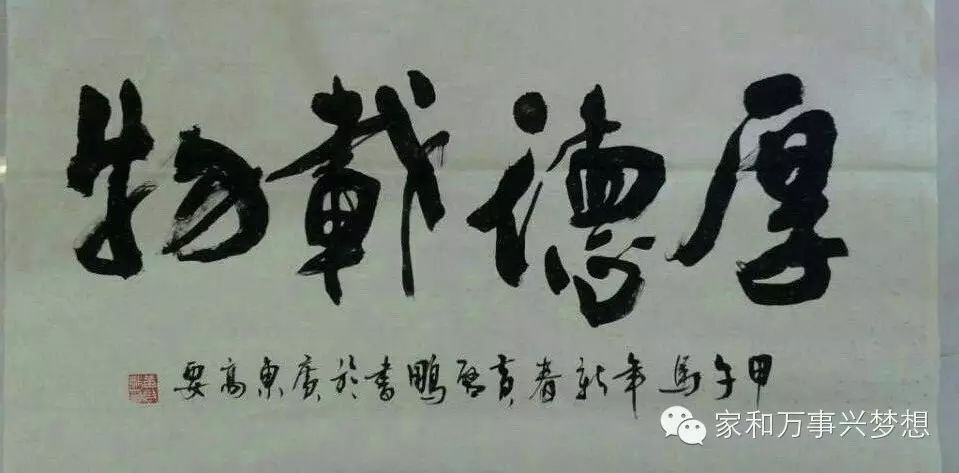 厚德載物
甲午馬年新春黃啓鵬書於廣東高要
家和万事兴梦想